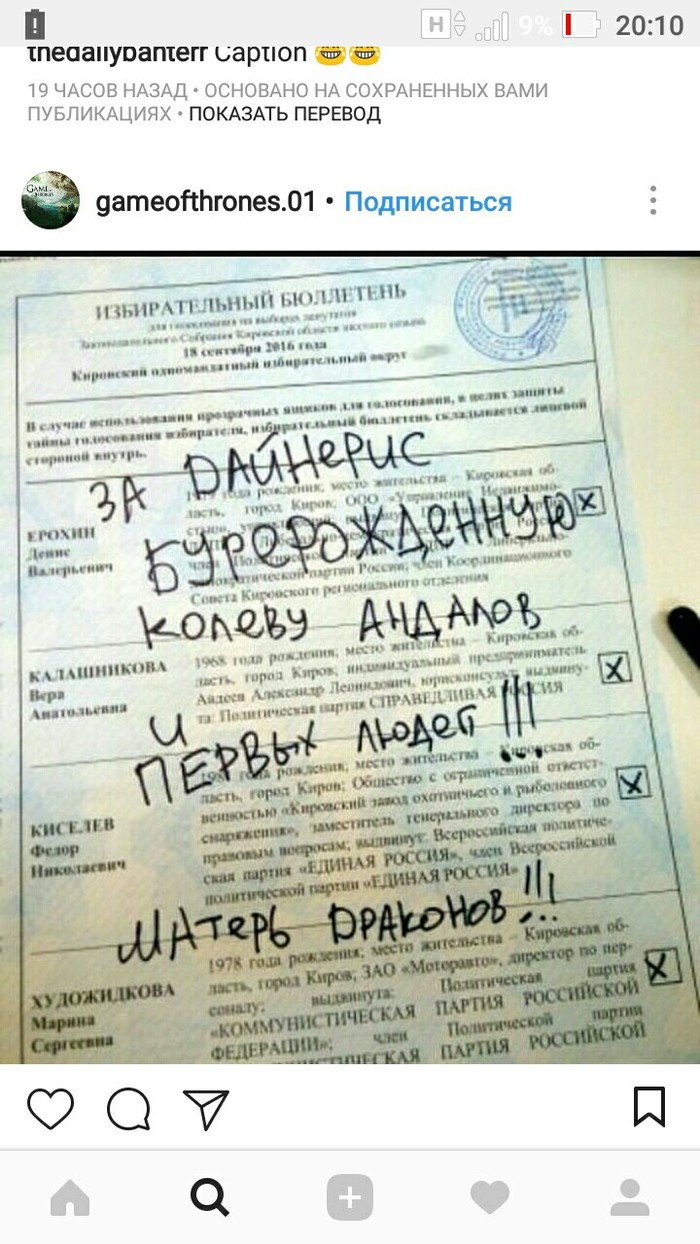 H 9% 20:10
thedailybanterr Caption
19 ЧАСОВ НАЗАД • ОСНОВАНО НА СОХРАНЕННЫХ ВАМИ
ПУБЛИКАЦИЯХ • ПОКАЗАТЬ ПЕРЕВОД
gameofthrones.01 • Подписаться
ИЗБИРАТЕЛЬНЫЙ БЮЛЛЕТЕНЬ
для голосования на выборах депутатов
Законодательного Собрания Кировской области шестого созыва
18 сентября 2016 года
Кировский одномандатный избирательный округ
В случае использования прозрачных ящиков для голосования, в целях защиты
тайны голосования избирателя, избирательный бюллетень складывается лицевой
стороной внутрь.
ЗА ДАЙНЕРИС
года рождения; место жительства – Кировская об-
ласть, город Киров; ООО «Управление
ЕРОХИН
Денис
Валерьевич
БУРЕРОЖДЕННУЮ
партии России, член Координационного
Совета Кировского регионального отделения
КОЛЕВУ АНДАЛОВ
КАЛАШНИКОВА
Вера
Анатольевна
1968 года рождения; место жительства – Кировская об-
ласть, город Киров; индивидуальный предприниматель
Авдеев Александр Леонидович, юрисконсульт; выдвину-
та: Политическая партия СПРАВЕДЛИВАЯ РОССИЯ
И
ПЕРВЫХ ЛЮДЕЙ !!!
КИСЕЛЕВ
Федор
Николаевич
года рождения; место жительства – Кировская об-
ласть, город Киров; Общество с ограниченной ответст-
венностью «Кировский завод охотничьего и рыболовного
снаряжения», заместитель генерального директора по
правовым вопросам; выдвинут: Всероссийская политиче-
ская партия «ЕДИНАЯ РОССИЯ», член Всероссийской
политической партии «ЕДИНАЯ РОССИЯ»
МАТЕРЬ ДРАКОНОВ !!!
ХУДОЖИДКОВА
Марина
Сергеевна
1978 года рождения; место жительства – Кировская об-
ласть, город Киров; ЗАО «Моторавто», директор по пер-
соналу; выдвинута: Политическая партия
«КОММУНИСТИЧЕСКАЯ ПАРТИЯ РОССИЙСКОЙ
ФЕДЕРАЦИИ»; член Политической партии
ПАРТИЯ РОССИЙСКОЙ